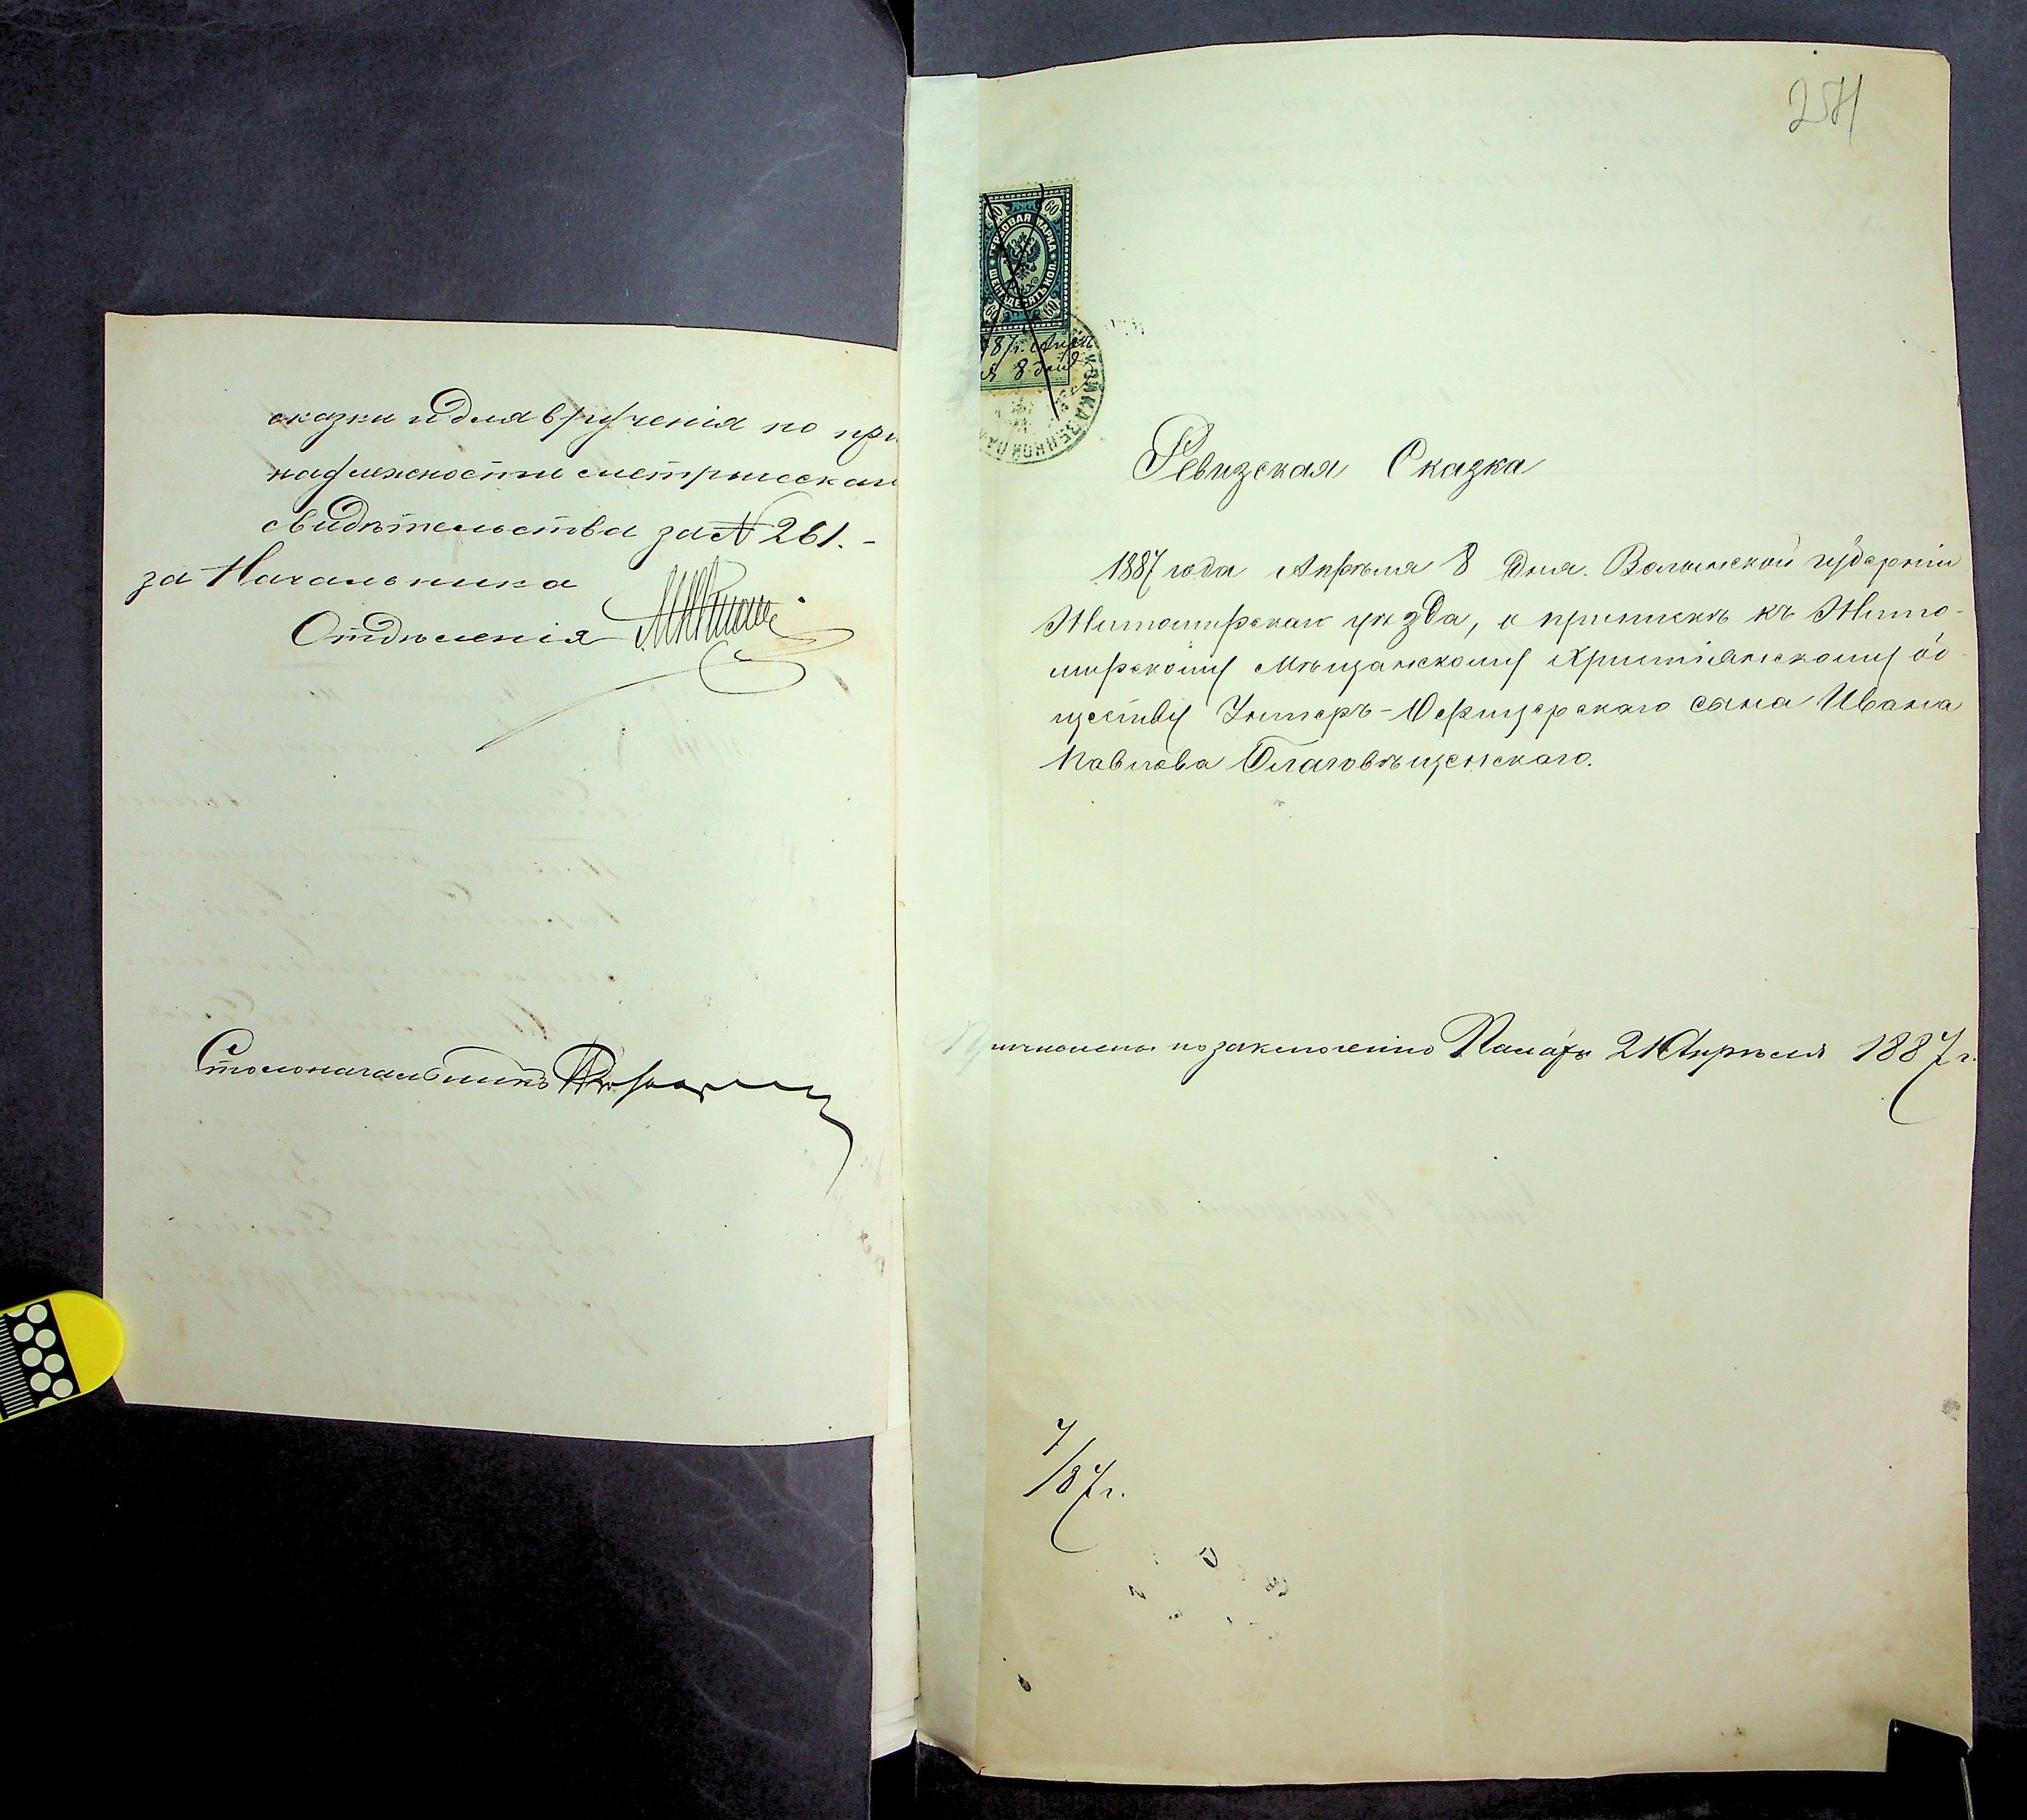 сказки и для врученія по при
надлежности метрическаго
свидѣтельства за № 261.-
за Начальника
Отдѣленія
Столоначальникъ
254
60 60
ГЕРБОВАЯ МАРКА
ШЕСТЬДЕСЯТЪ КОП.
60 60
87г. Апрѣ
ля 8 дня
КАЗЕННОЙ ПАЛ
Ревизская Сказка
1887 года Апрѣля 8 дня. Волынской губерніи
Житомирскаго уѣзда, о припискѣ къ Жито-
мирскому Мѣщанскому Христіанскому об-
ществу Унтеръ-Офицерскаго сына Ивана
Павлова Благовѣщенскаго.
Причислены по заключенію Палаты 21 Апрѣля 1887 г.
7/87г.